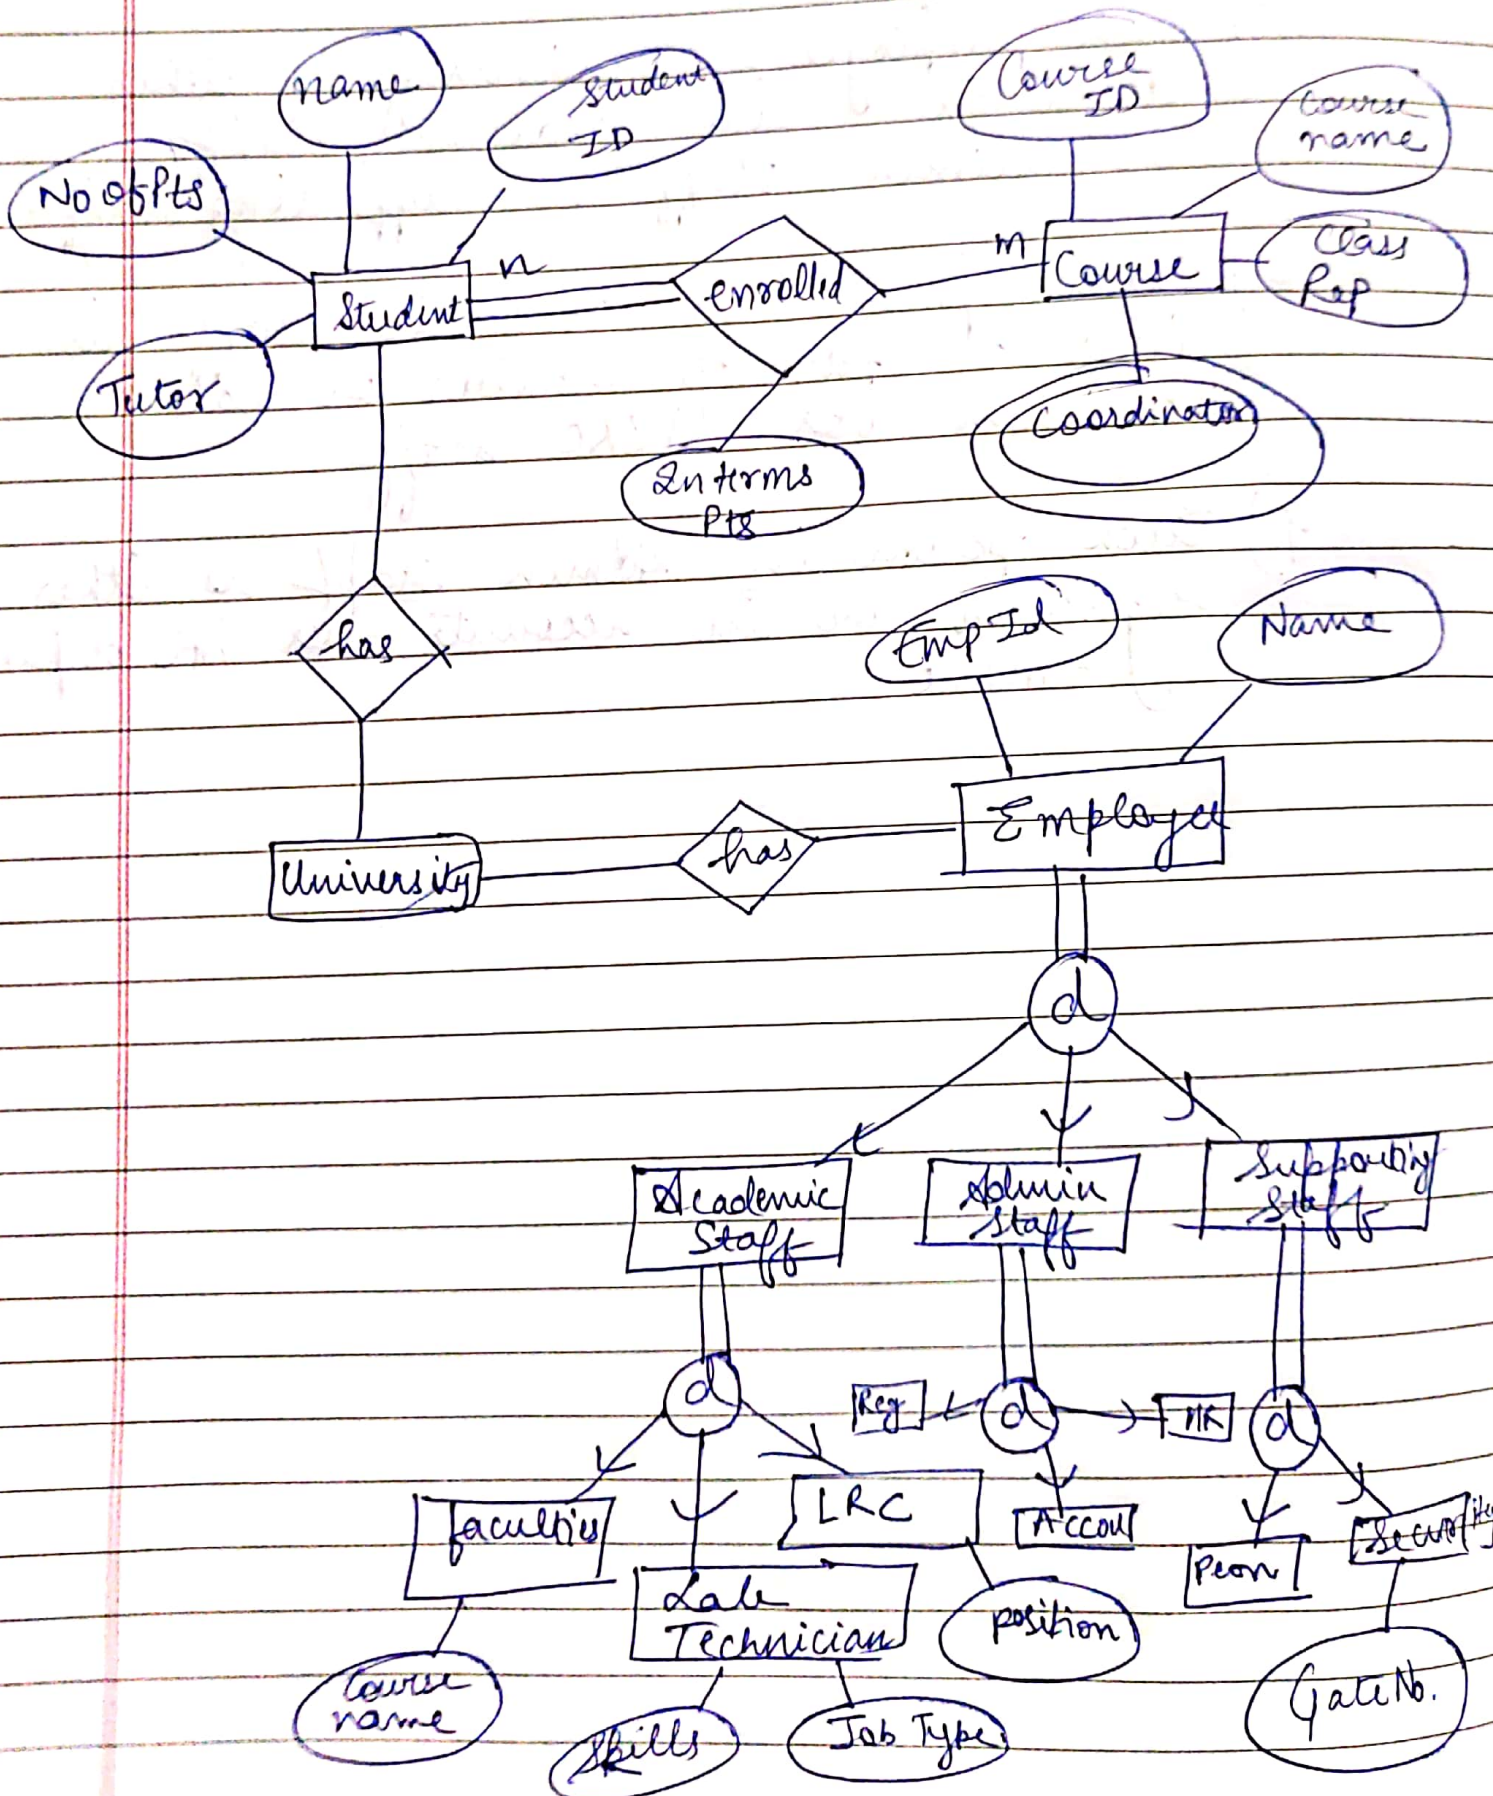 name
Student
ID
Course
ID
Course
name
No of Pts
n
m
Student
enrolled
Course
Class
Rep
Tutor
Coordinator
Pts
has
Emp Id
Name
Employee
University
has
d
Academic
Staff
Admin
Staff
Supporting
Staff
d
Reg
d
HR
d
faculties
LRC
Accou
Security
Peon
Lab
Technician
position
Course
name
Skills
Job Type
Gate No.